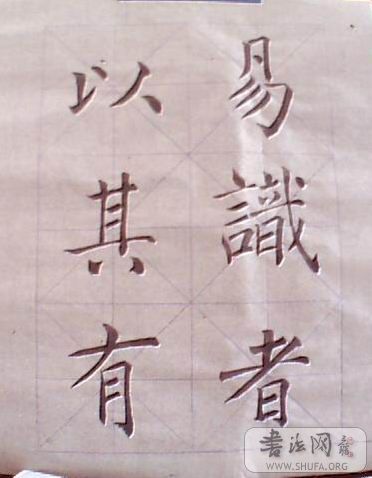 易識者
以其有
書法网
WWW.SHUFA.ORG